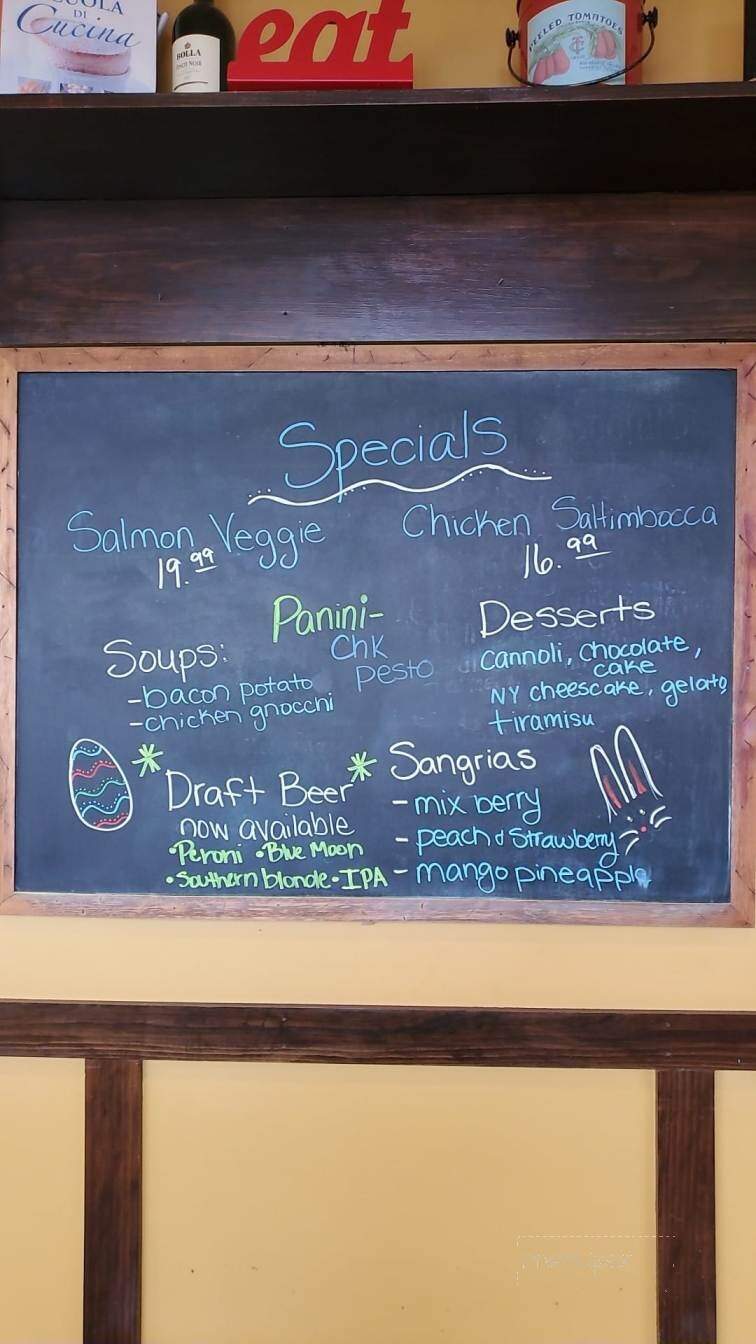 CUOLA
DI
Cucina
BOLLA
PINOT NOIR
eat
PEELED TOMATOES
Specials
Salmon Veggie
19.99
Chicken Saltimbocca
16.99
Panini-
Chk
pesto
Soups:
-bacon potato
-chicken gnocchi
Desserts
Cannoli, chocolate,
cake
NY cheescake, gelato,
tiramisu
* Draft Beer *
now available
•Peroni •Blue Moon
•Southern blonde •IPA
Sangrias
- mix berry
- peach & Strawberry
- mango pineapple